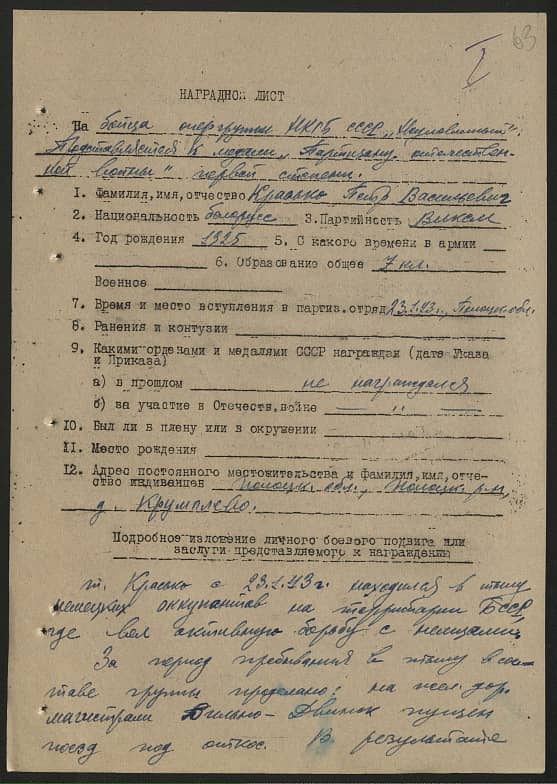 63
НАГРАДНОЙ ЛИСТ
На бойца опергруппы НКГБ СССР „Неуловимый“
Представляется к медали „Партизану отечествен-
ной войны“ первой степени.
1. Фамилия,имя,отчество Красько Петр Васильевич
2. Национальность белорусс 3.Партийность ВЛКСМ
4. Год рождения 1925 5. С какого времени в армии
6. Образование общее 7 кл.
Военное
7. Время и место вступления в партиз.отряд 23.1.43г., Полоцк. обл.
8. Ранения и контузии
9. Какими орденами и медалями СССР награжден (дата Указа
и Приказа)
а) в прошлом не награждался
б) за участие в Отечеств.войне — „ —
10. Был ли в плену или в окружении
11. Место рождения
12. Адрес постоянного местожительства и Фамилия,имя,отче-
ство иждивенцев Полоцк. обл., Полоцк. р-н,
д. Крумплево.
Подробное изложение личного боевого подвига или
заслуги представляемого к награждению
т. Красько с 23.1.43г. находился в тылу
немецких оккупантов на территории БССР,
где вел активную борьбу с немцами.
За период пребывания в тылу в сос-
таве группы проделано: на жел. дор.
магистрали Вильно - Двинск пущен
поезд под откос. В результате